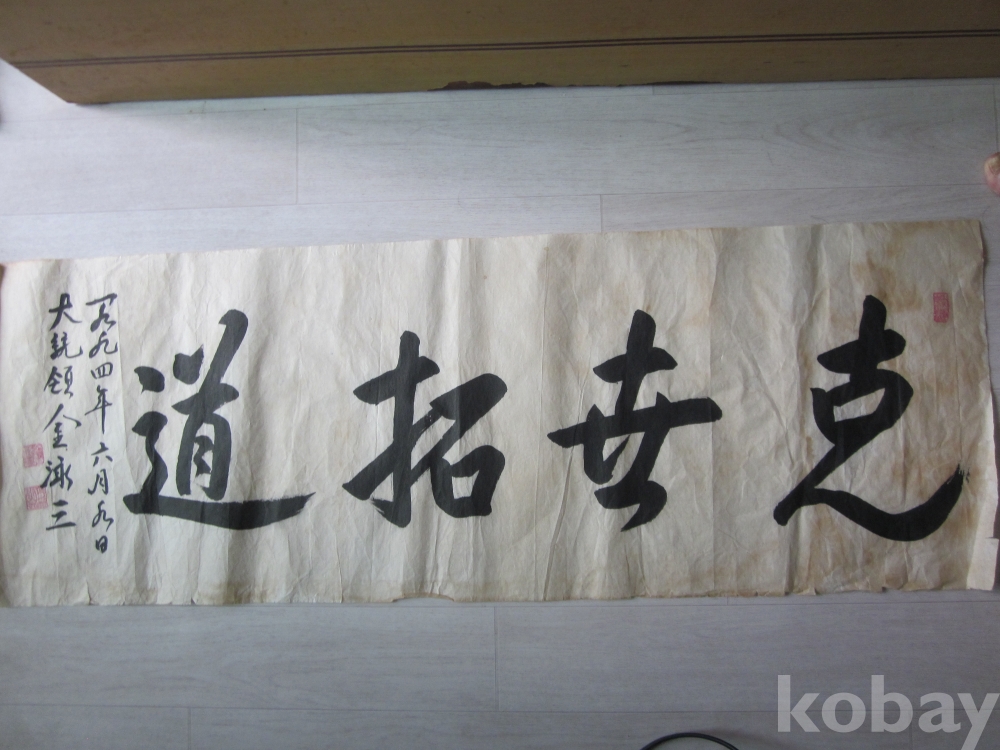 克世拓道
一九九四年 六月九日
大統領 金泳三
kobay